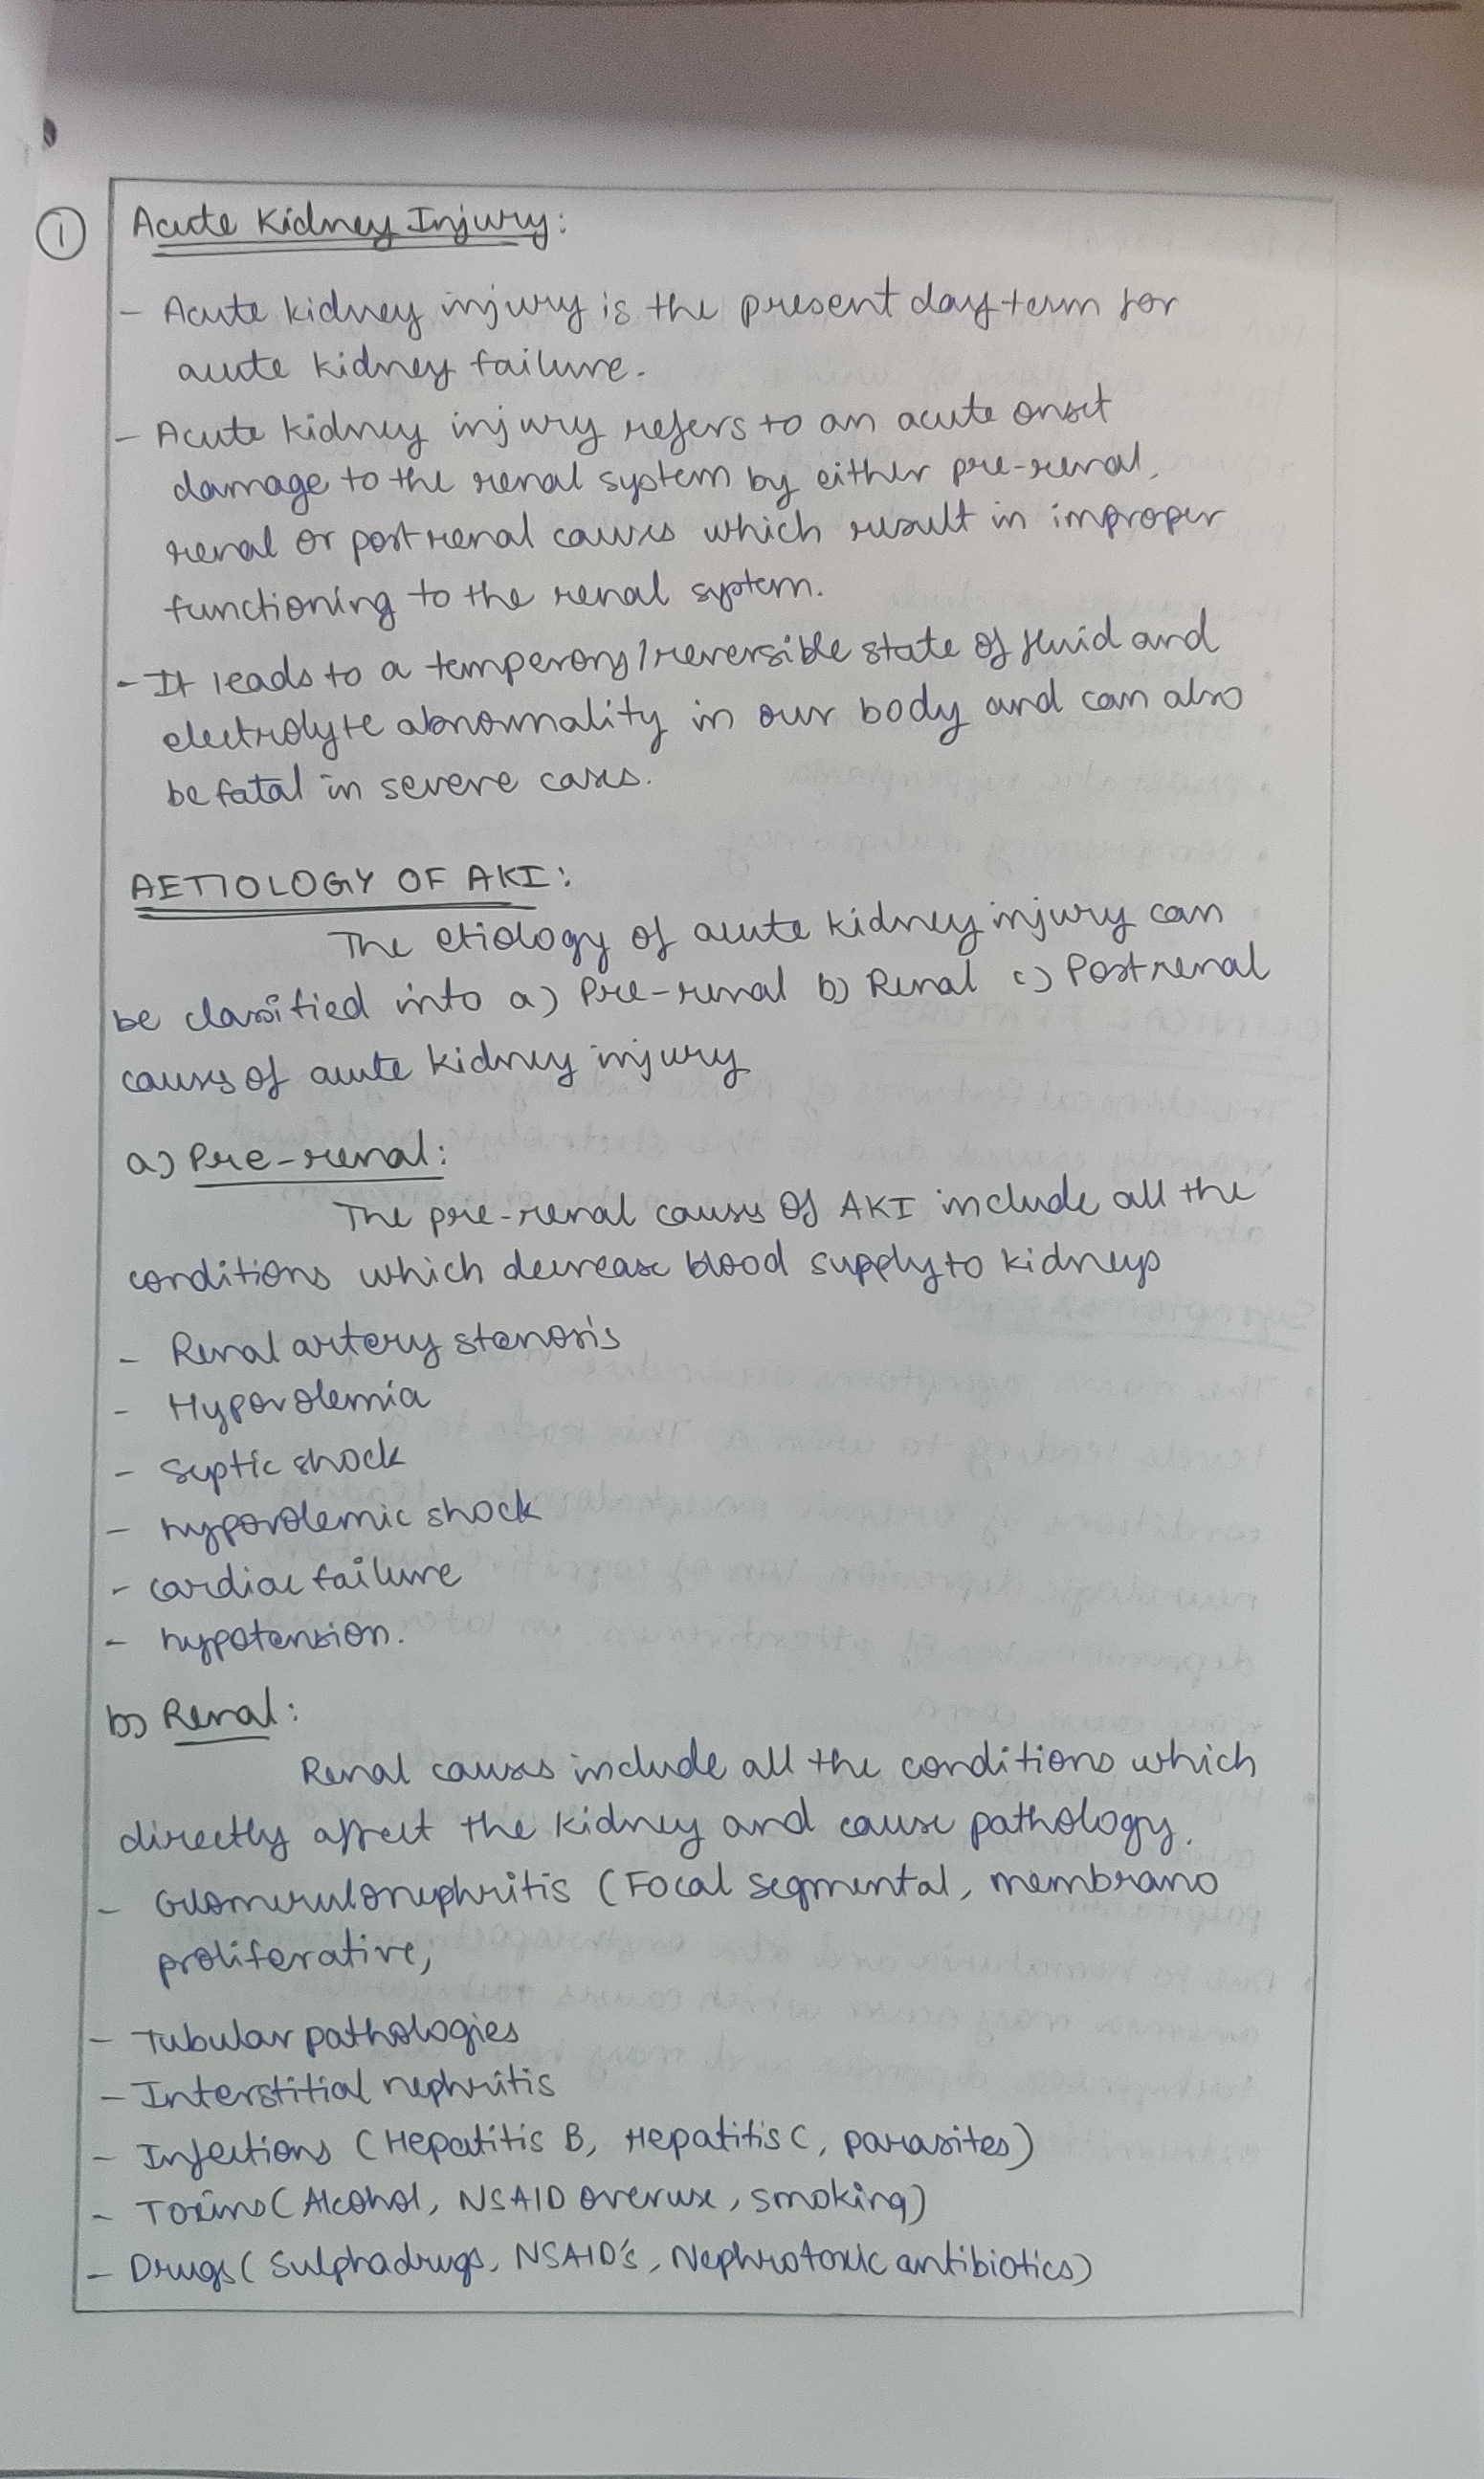 1
Acute Kidney Injury:
- Acute kidney injury is the present day term for
acute kidney failure.
- Acute kidney injury refers to an acute onset
damage to the renal system by either pre-renal,
renal or post renal causes which result in improper
functioning to the renal system.
- It leads to a temperory/reversible state of fluid and
electrolyte abnormality in our body and can also
be fatal in severe cases.
AETIOLOGY OF AKI:
The etiology of acute kidney injury can
be classified into a) Pre-renal b) Renal c) Postrenal
causes of acute kidney injury
a) Pre-renal:
The pre-renal causes of AKI include all the
conditions which decrease blood supply to kidneys
- Renal artery stenosis
- Hypovolemia
- Septic shock
- hypovolemic shock
- cardiac failure
- hypotension.
b) Renal:
Renal causes include all the conditions which
directly affect the kidney and cause pathology.
- Glomerulonephritis (Focal segmental, membrano
proliferative,
- Tubular pathologies
- Interstitial nephritis
- Infections (Hepatitis B, Hepatitis C, parasites)
- Toxins (Alcohol, NSAID overuse, smoking)
- Drugs (Sulphadrugs, NSAID's, Nephrotoxic antibiotics)